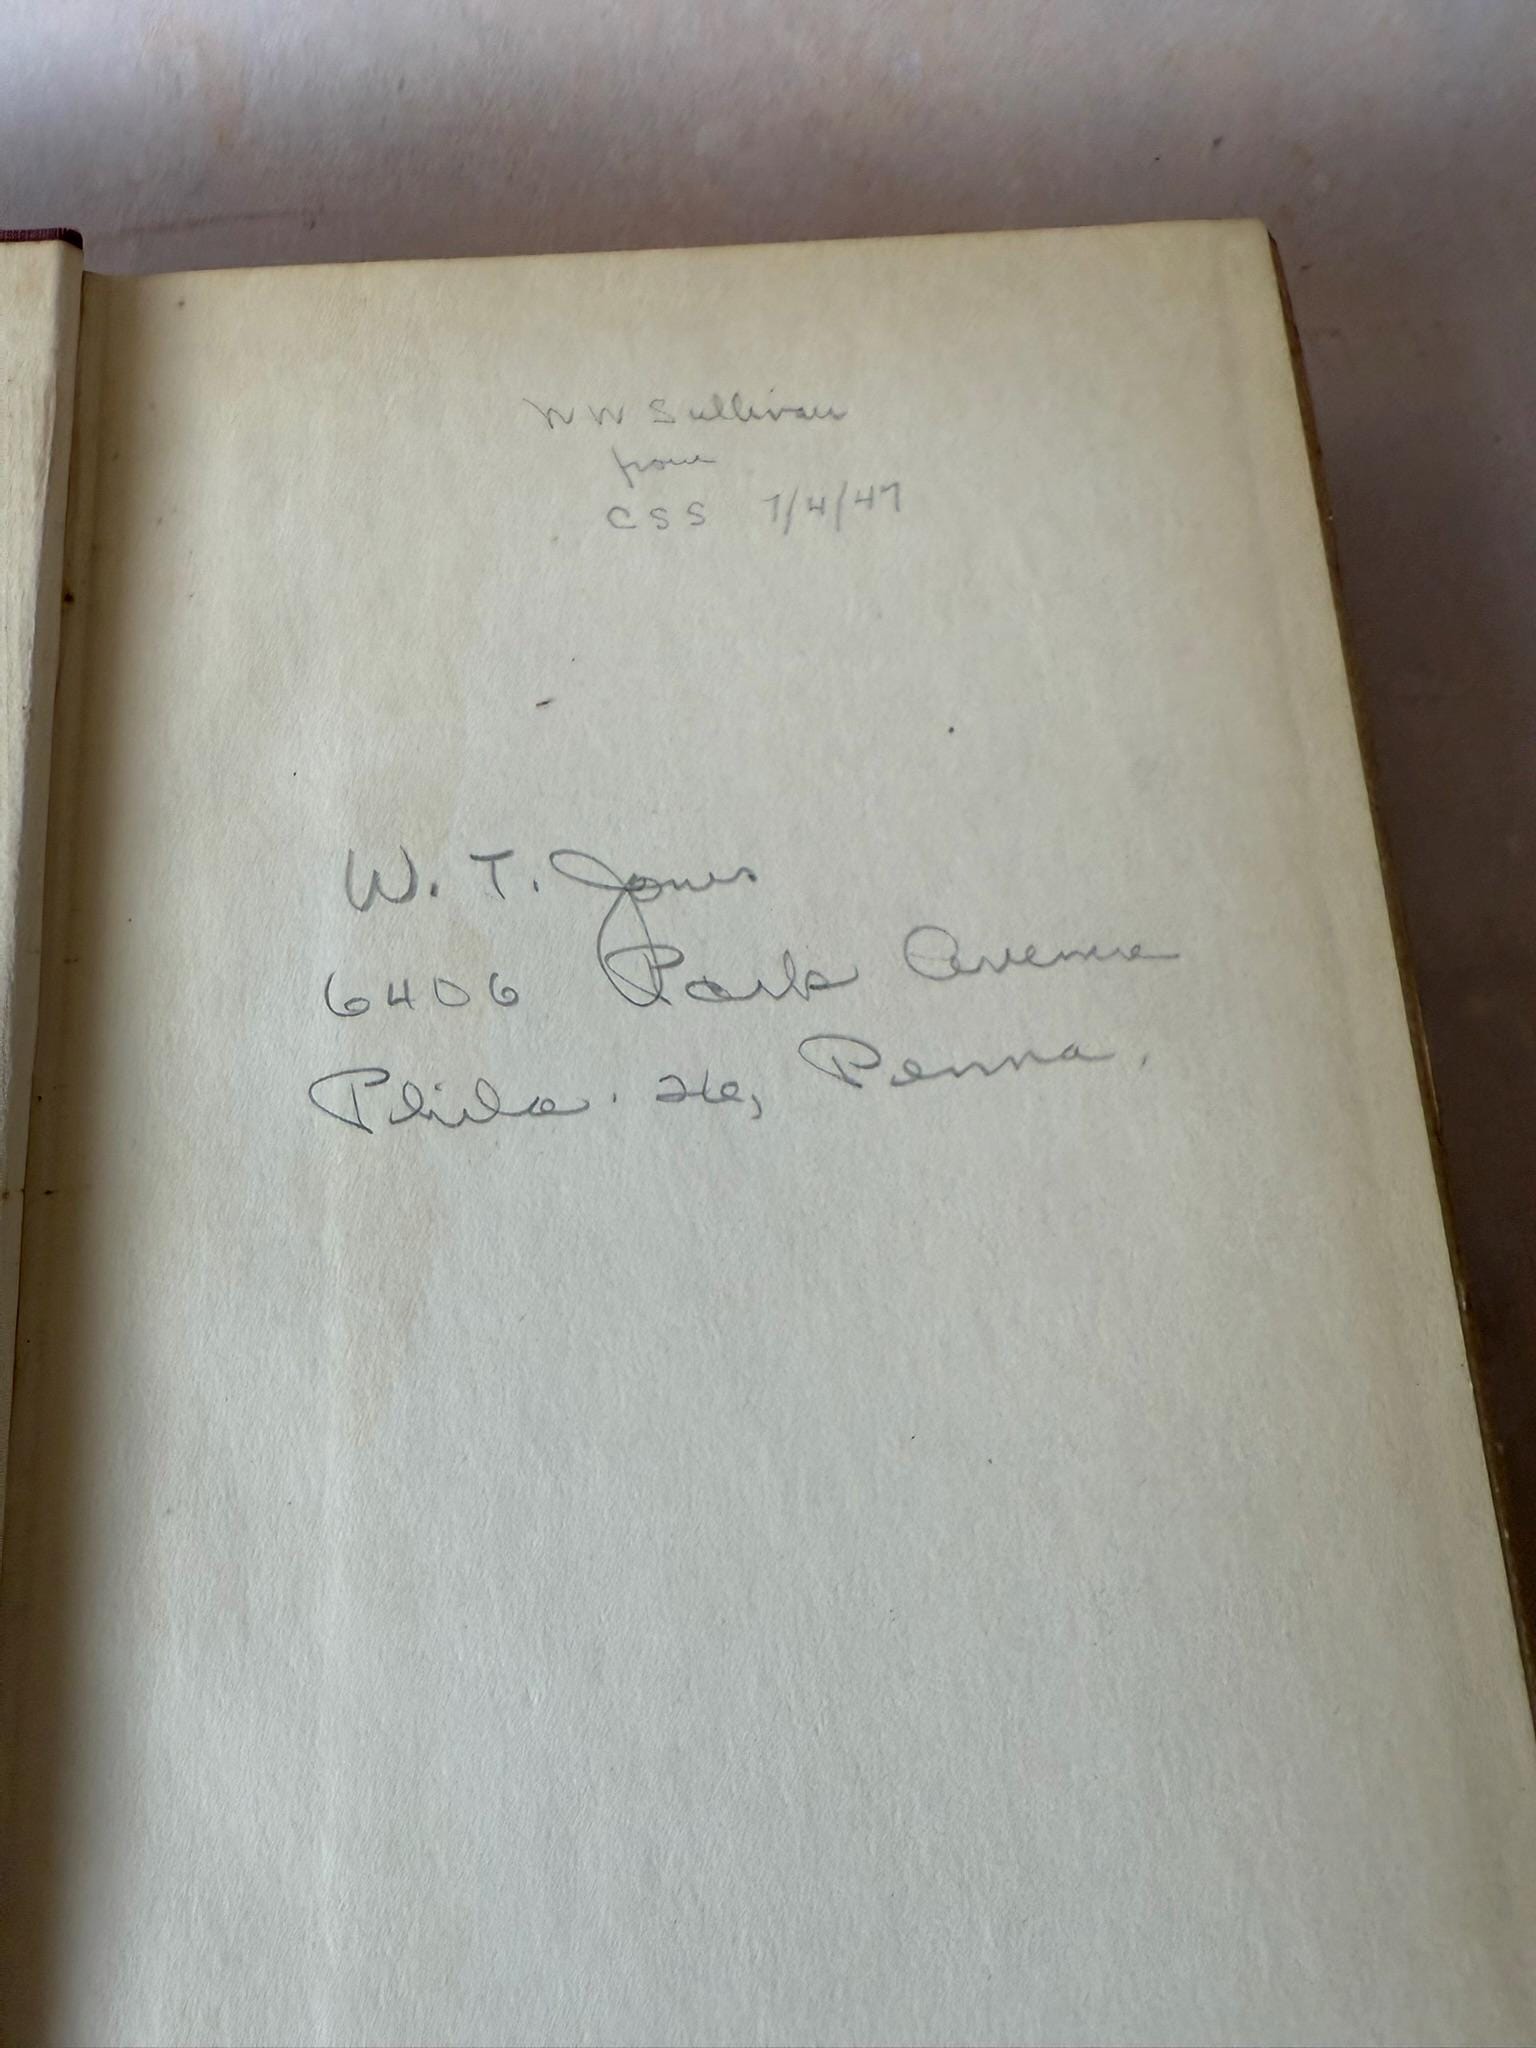 W W Sullivan
from
CSS 7/4/47
W. T. Jones
6406 Park Avenue
Phila. 26, Penna.